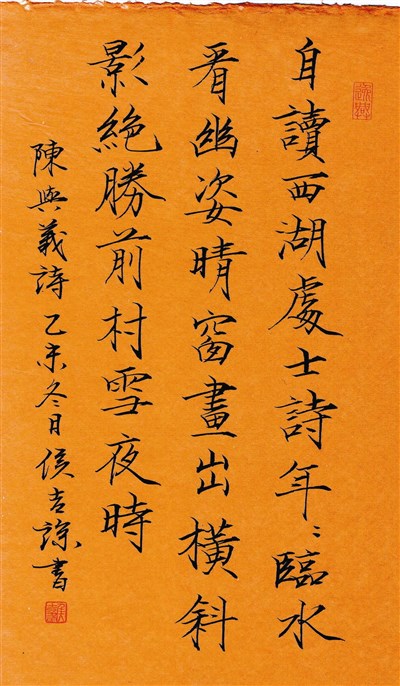 自讀西湖處士詩年〻臨水
看幽姿晴窗畫出橫斜
影絕勝前村雪夜時
陳與義詩 乙未冬日 侯吉諒書